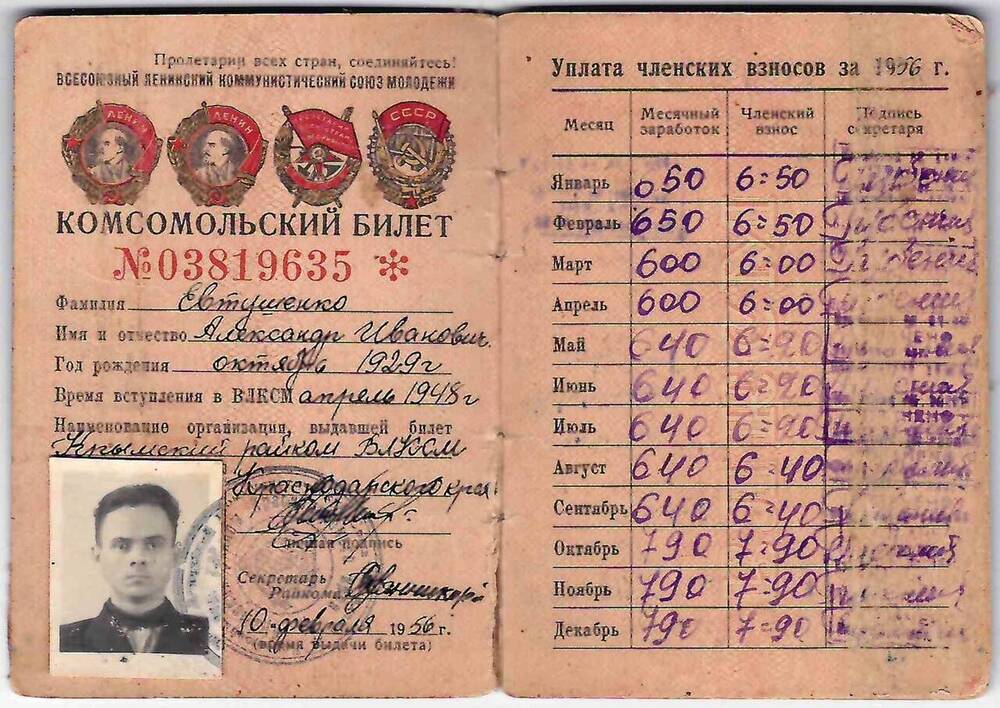 Пролетарии всех стран, соединяйтесь!
ВСЕСОЮЗНЫЙ ЛЕНИНСКИЙ КОММУНИСТИЧЕСКИЙ СОЮЗ МОЛОДЕЖИ
ЛЕНИН ЛЕНИН СССР
КОМСОМОЛЬСКИЙ БИЛЕТ
№03819635 *
Фамилия Евтушенко
Имя и отчество Александр Иванович.
Год рождения октябрь 1929г
Время вступления в ВЛКСМ апрель 1948г
Наименование организации, выдавшей билет
Крымский райком ВЛКСМ
Краснодарского края
Личная подпись
Секретарь
Райкома
10 февраля 1956 г.
(время выдачи билета)
Уплата членских взносов за 1956 г.
Месяц Месячный заработок Членский взнос Подпись секретаря
Январь 650 6=50
Февраль 650 6=50
Март 600 6=00
Апрель 600 6=00
Май 640 6=20
Июнь 640 6=20
Июль 640 6=20
Август 640 6=40
Сентябрь 640 6=40
Октябрь 790 7=90
Ноябрь 790 7=90
Декабрь 790 7=90